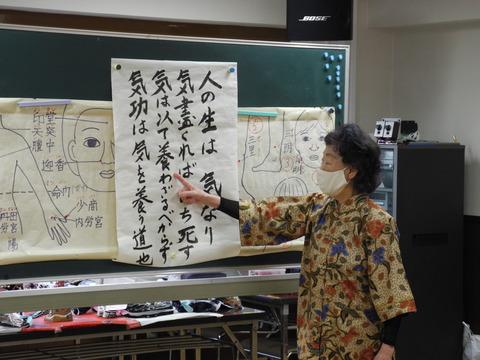 人の生は気なり
気盡くれば即ち死す
気は以て養わざるべからず
気功は気を養う道也
印堂
天突
膻中
迎香
命巾
少商
内労宮
丹田
労宮
BOSE